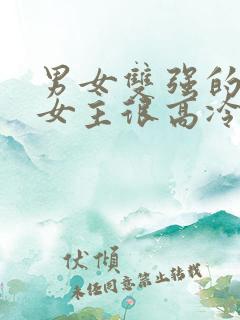 男女雙强的
女王很高冷
伏傾
未经同意禁止转载